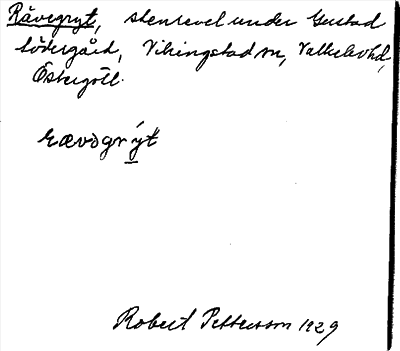 Rävegryt, stenrevel under Gustad
södergård, Vikingstad sn, Valkebo hd,
Östergötl.
rævəgrýt
Robert Pettersson 1929